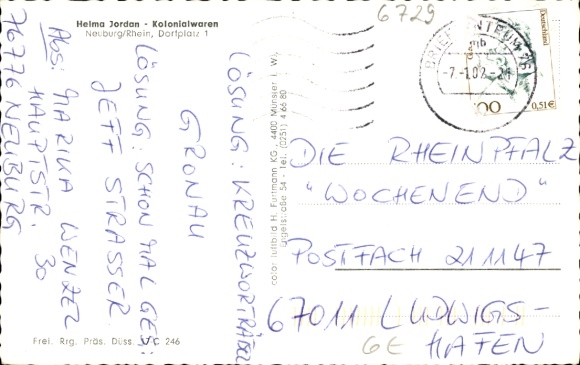 6729
Helma Jordan - Kolonialwaren
Neuburg/Rhein, Dorfplatz 1
LÖSUNG: KREUZWORTRÄTSEL
GRONAU
LÖSUNG: SCHON MAL GES.:
JEFF STRASSER
ABS: MARIKA WENZEL
HAUPTSTR. 30
76776 NEUBURG
color luftbild H. Futtmann KG, 4400 Münster i. W.,
Engelstraße 54 - Tel. (0251) 4 66 80
BRIEFZENTRUM 76
mb
-7.-1.02.-21
Deutschland
100
0,51€
DIE RHEINPFALZ
"WOCHENEND"
POSTFACH 211147
67011 LUDWIGS-
HAFEN
GE
Frei. Rrg. Präs. Düss. 246